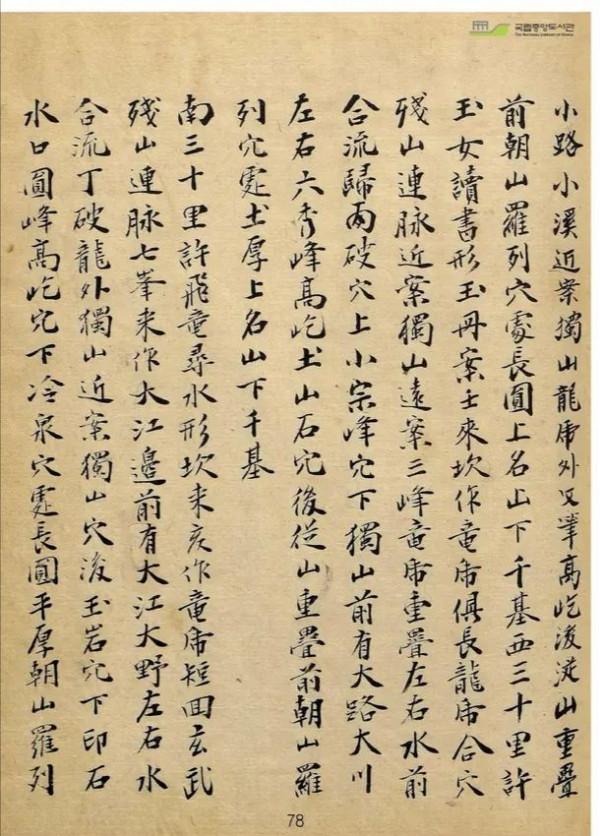 국립중앙도서관
The National Library of Korea
小路小溪近案獨山龍虎外文峯高屹後從山重疊
前朝山羅列穴處長圓上名山下千基西三十里許
玉女讀書形玉丹案壬來坎作竜虎俱長龍虎合穴
殘山連脉近案獨山遠案三峰竜虎重疊左右水前
合流歸丙破穴上小宗峰穴下獨山前有大路大川
左右六秀峰高屹土山石穴後從山重疊前朝山羅
列穴處土厚上名山下千基
南三十里許飛竜尋水形坎来亥作竜虎短回玄武
殘山連脉七峯来作大江邊前有大江大野左右水
合流丁破龍外獨山近案獨山穴後玉岩穴下印石
水口圓峰高屹穴下冷泉穴處長圓平厚朝山羅列
78